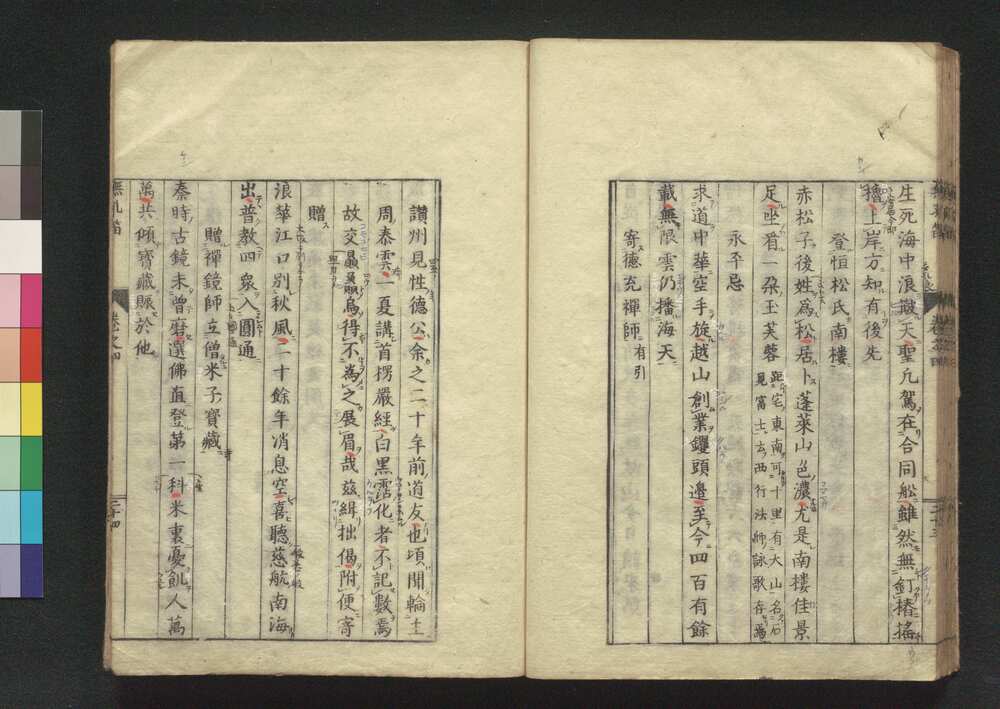 生死海中浪蹴天聖凡駕在合同舩雖然無釘樁搖
櫓上岸方知有後先
登恒松氏南樓
赤松子後姓為松居卜蓬萊山色濃尤是南樓佳景
足坐看一朶玉芙蓉
距宅東南可十里有大山名石
見富士云西行法師詠歌存焉
永平忌
求道中華空手旋越山創業钁頭邊至今四百有餘
載無限雲仍播海天
寄德充禪師有引
讃州見性德公余之二十年前道友也頃聞輪主
周泰雲一夏講首楞嚴經白黑霑化者不記數焉
故交贔屓烏得不為之展眉哉茲緝拙偈附便寄
贈
浪華江口別秋風二十餘年消息空喜聽慈航南海
出普教四衆入圓通
贈禪鏡師立僧米子寶藏寺
秦時古鏡未曾磨選佛直登第一科米裏憂飢人萬
萬共傾寶藏賑於他
卷之四
二十四